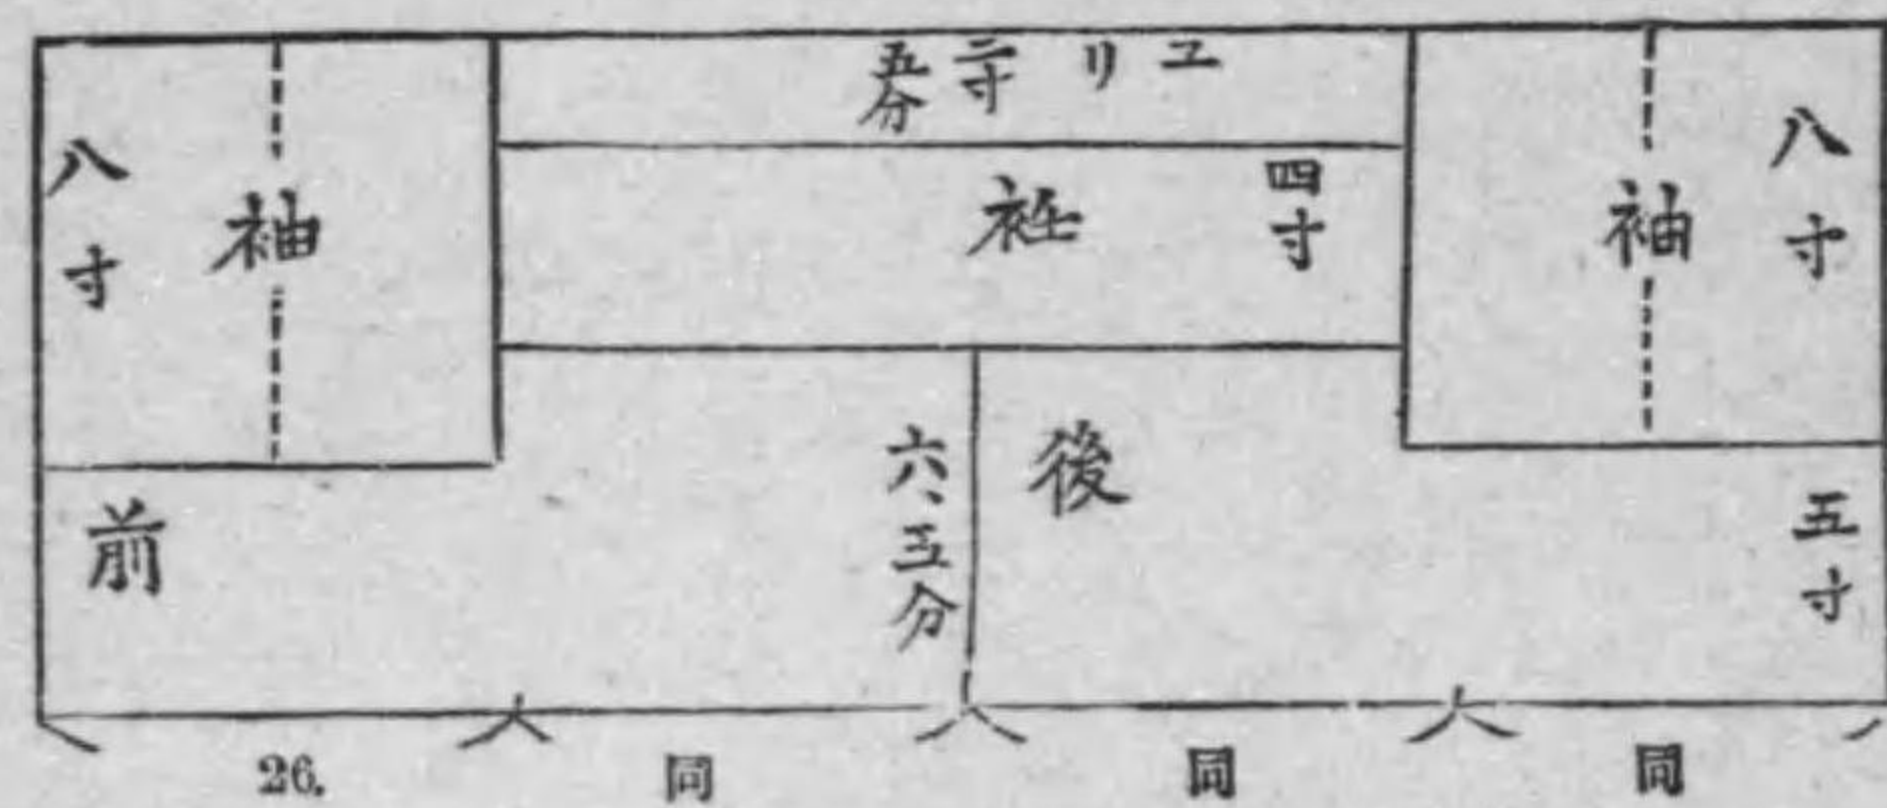 八寸
袖
ヱリ 二寸五分
衽
四寸
袖
八寸
前
六、五分
後
五寸
26.
同
同
同